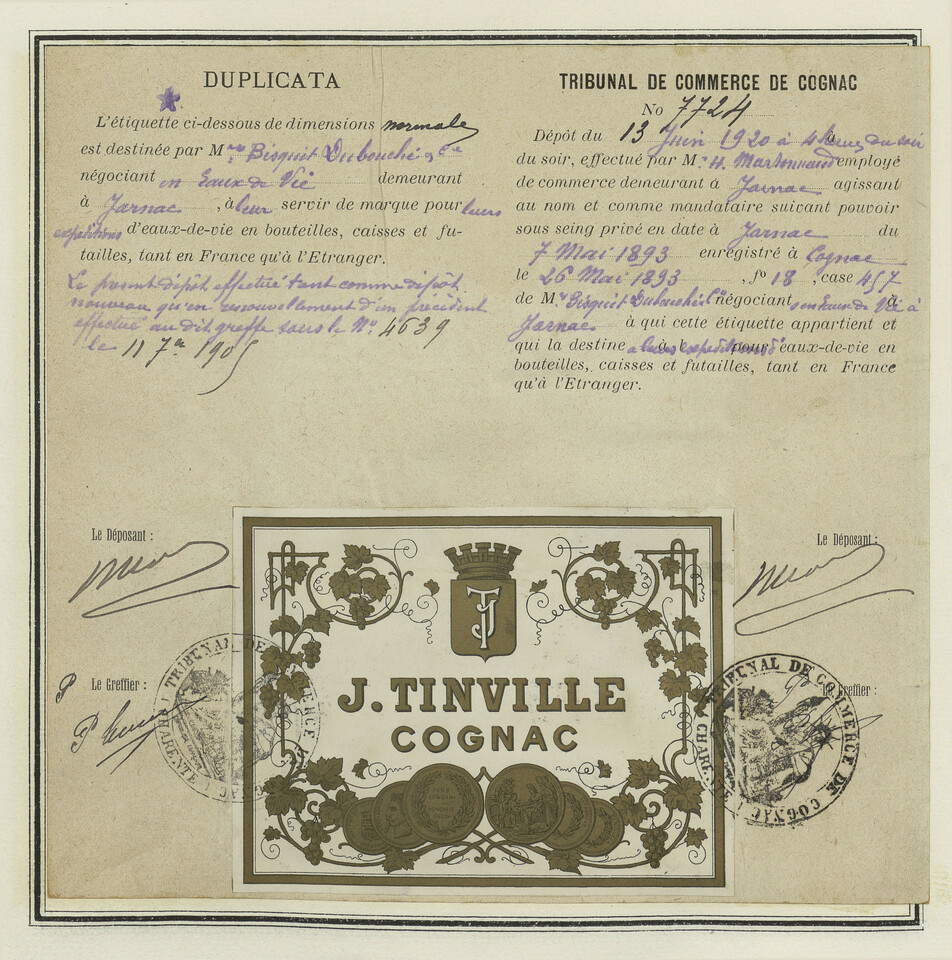 DUPLICATA
L'étiquette ci-dessous de dimensions normale
est destinée par Mrs Bisquit Dubouché & Cie
négociant en Eaux de Vie demeurant
à Jarnac, à leur servir de marque pour leurs
expeditions d'eaux-de-vie en bouteilles, caisses et fu-
tailles, tant en France qu'à l'Etranger.
Le présent dépôt effectué tant comme dépôt
nouveau qu'en renouvellement d'un précédent
effectué au dit greffe sous le No 4639
le 11 7re 1905
TRIBUNAL DE COMMERCE DE COGNAC
No 7724
Dépôt du 13 Juin 1920 à 4 heures du soir
du soir, effectué par M. H. Martonnaud employé
de commerce demeurant à Jarnac agissant
au nom et comme mandataire suivant pouvoir
sous seing privé en date à Jarnac du
7 Mai 1893 enregistré à Cognac
le 26 Mai 1893, fo 18, case 457
de Mrs Bisquit Dubouché Cie négociant en Eaux de Vie à
Jarnac à qui cette étiquette appartient et
qui la destine à leurs expeditions d'eaux-de-vie en
bouteilles, caisses et futailles, tant en France
qu'à l'Etranger.
Le Déposant :
Le Déposant :
Le Greffier :
Le Greffier :
TRIBUNAL DE COMMERCE DE COGNAC
CHARENTE
TRIBUNAL DE COMMERCE DE COGNAC
CHARENTE
JT
J. TINVILLE
COGNAC